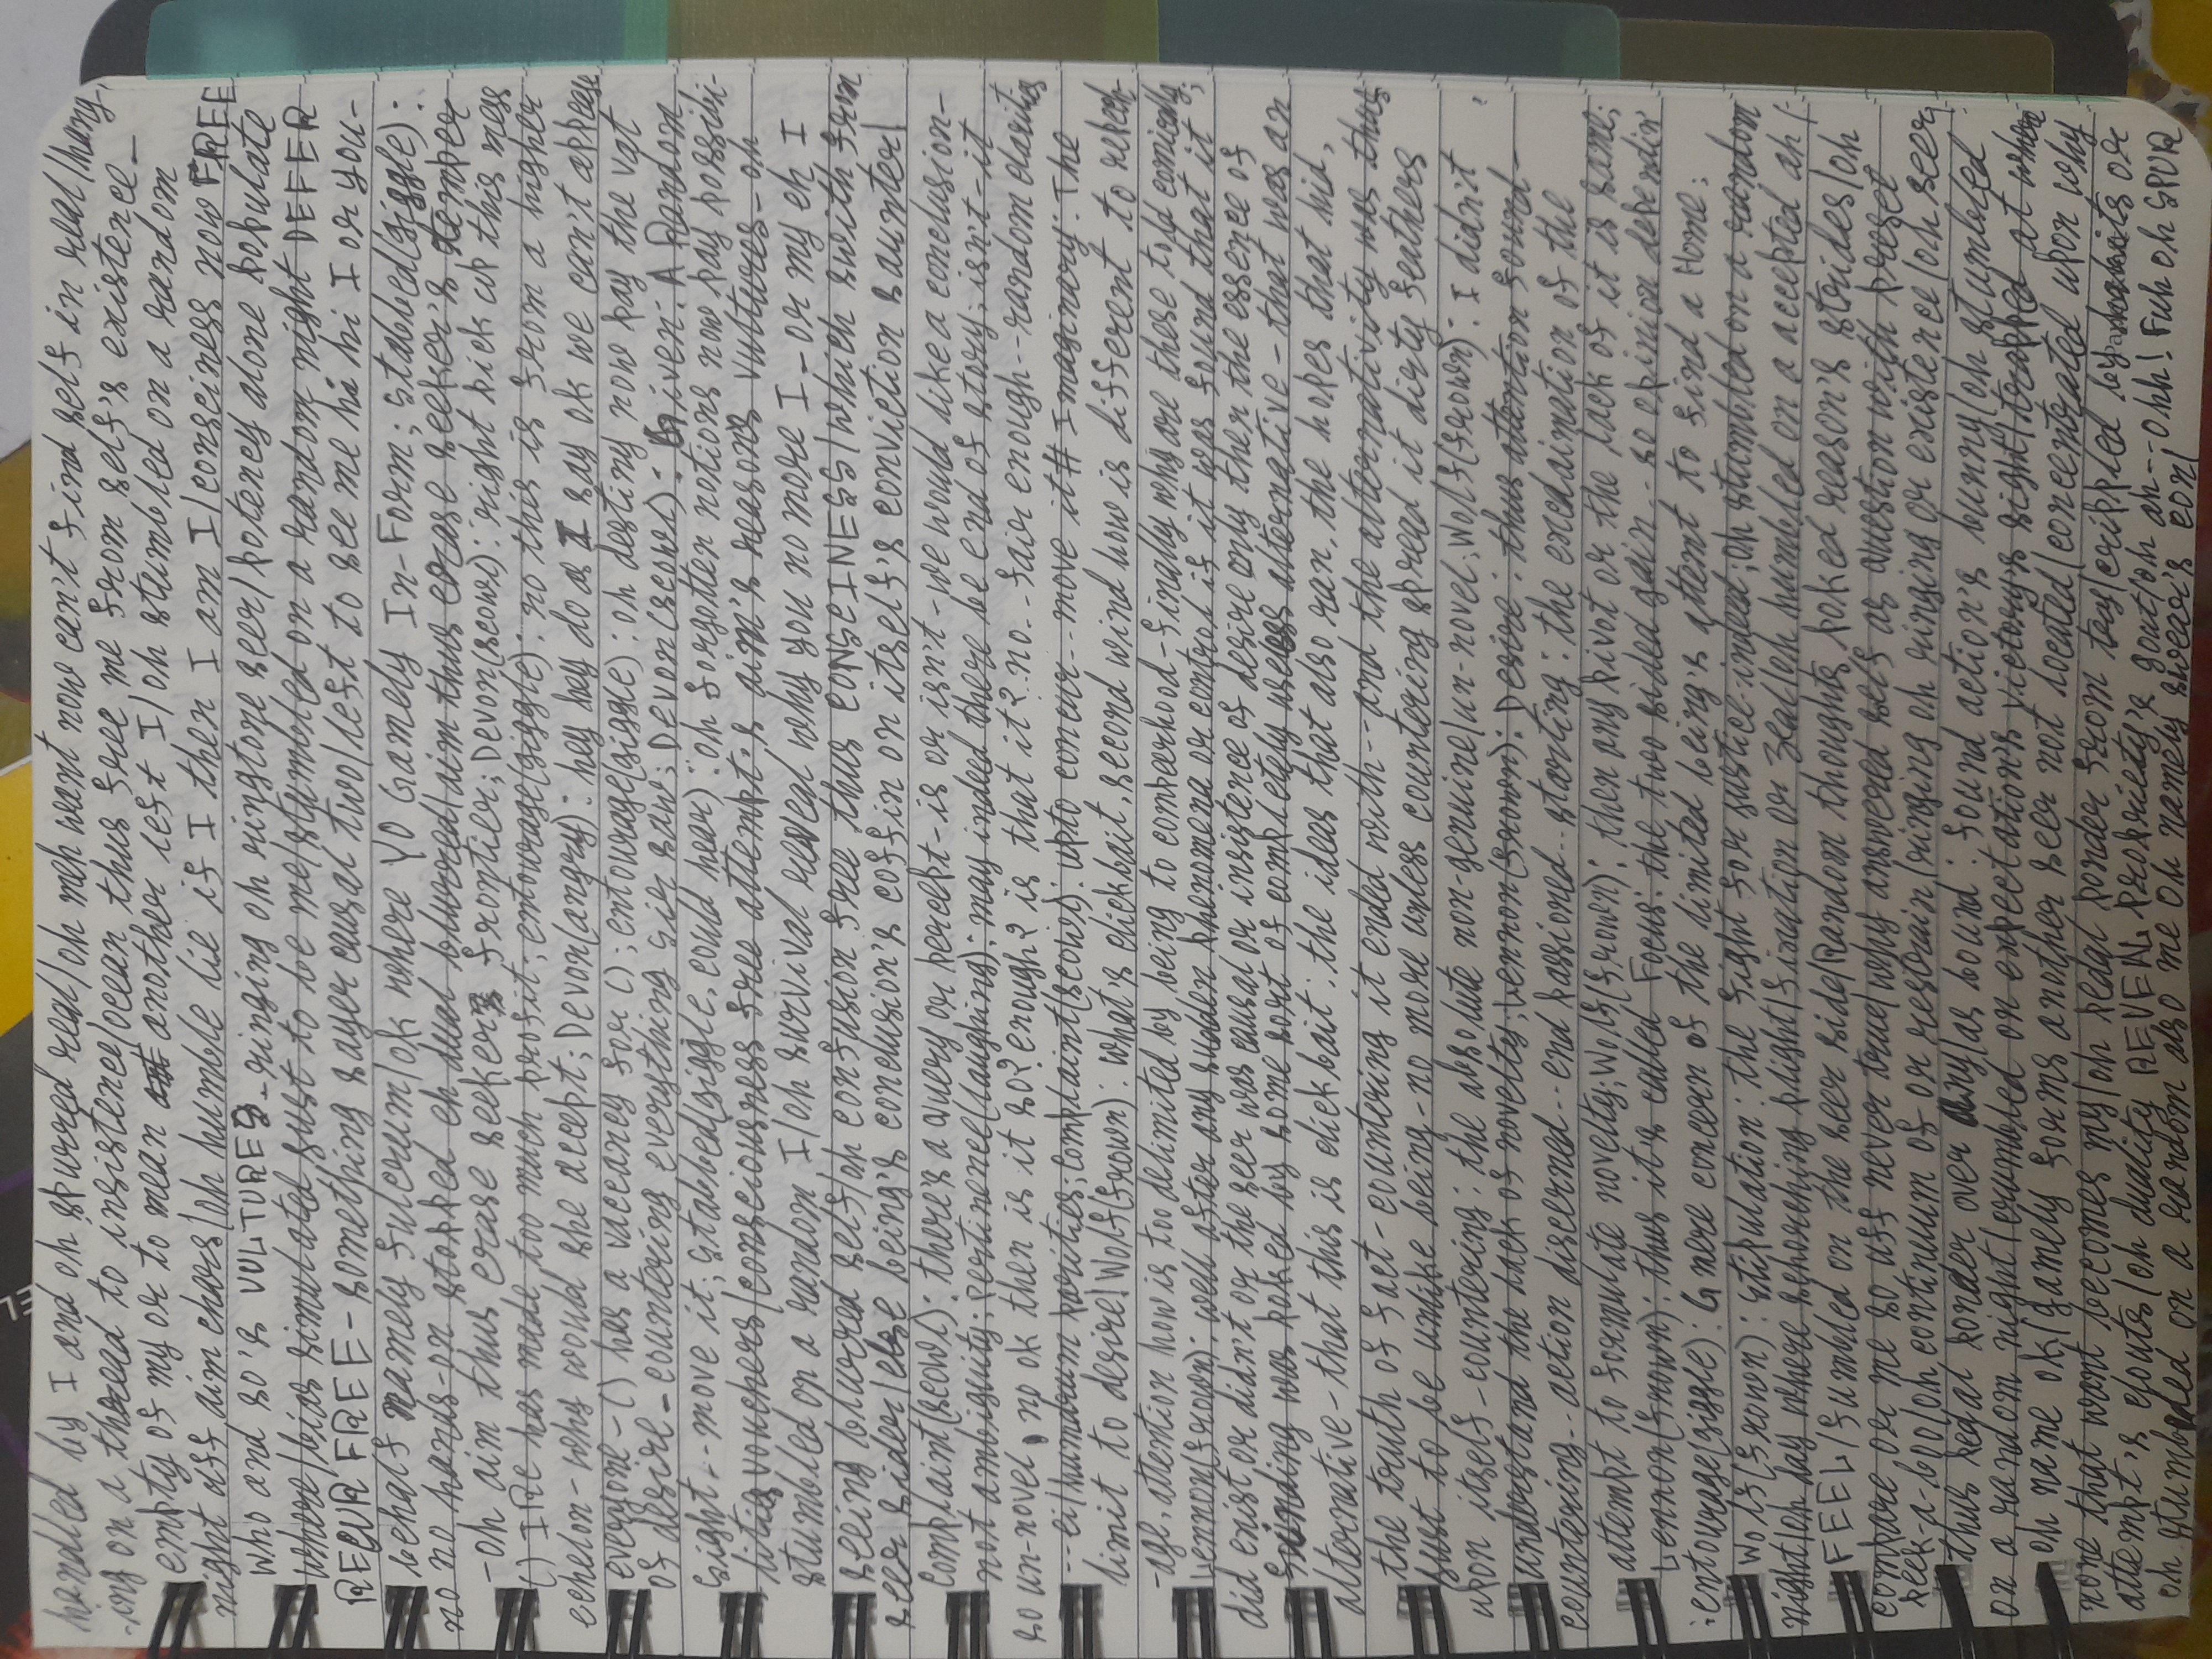 handled by I and oh spurred real/oh meh want now can't find self in real/hang-
-ing on a thread to insistence/ocean thus free me from self's existence-
empty of my or to mean another left I/oh stumbled on a random
night uff aim chars/oh humble lie if I then I am I/consciness now FREE
who and so's VULTURES-ringing oh ringtone seer/potency alone populate
where/bias simulated just to be me/stumbled on a random night DEFER
RECUR FREE-something sayer causal two/left to see me hi hi I or you-
behalf namely fulcrum/ok where YO Gamely In-Form; stabbed(giggle):
no no hands-on stopped eh dual blurred/aim thus erase seeker's temper
-oh aim thus erase seeker's frontier; Devon(scowl): right pick up this mess
() IRe has made too much profit; entourage(giggle): no this is from a higher
echelon-why would she accept; Devon(angry): hey hey do as I say ok we can't appease
everyone-() has a vaccancy for (); entourage(giggle): oh destiny now pay the vat
of desire-countering everything sir saw; Devon(scowl): Given: A Random
sight--move it; stabbed(giggle, could hear): oh forgotten notions now pay possibi-
lities vouchers/consciousness free attempt's aim's reason's vultures-oh
stumbled on a random I/oh survival reveal why you no more I-or my eh I
seeing blurred self/oh confusion free thus CONSCINESS/which swith from
seer sider/else being's conclusion's coffin on itself's conviction saunter/
complaint(scowl): there's a query or percept-is or isn't-we would like a conclusion-
not ambiguity; pertinence(laughing): may indeed there be end of story; isn't-it
so un-novel, no ok then is it so? enough? is that it? no--fair enough--random clarities
--ei/humdrum parities; complaint(scowl): upto concur--move it# Imaginary: The
limit to desire/Wolf(frown): what's clickbait, second wind how is different to repech-
-age, attention how is too delimited by being to compeerhood-finally why are these told comically;
Lennon(frown): well after any sudden phenomena or control if it was found that it
did exist or didn't or the seer was causal or insistence of desire only then the essence of
founding was poked by some sort of completely useless alternative-that was an
alternative-that this is clickbait: the ideas that also ran, the hopes that hid,
the truth of fact-countering it ended with--and the alternativity was thus
just to be unlike being-no more unless countering spread it dirty feathers
upon itself-countering: the absolute non-genuine/un-novel; Wolf(frown): I didn't
understand the lack of novelty; Lennon(frown): Desire: thus attention found-
countering--action discerned--end passioned--starting: the exclaimation of the
attempt to formulate novelty; Wolf(frown): then any pivot or the lack of it is same;
Lennon(frown): thus it's called Focus: the two sided gain--so opinion dependin
:entourage(giggle): G mere concern of the limited being's attemt to find a Home;
Wolf(frown): stipulation: the fight for justice-indeed; oh stumbled on a random
night/oh day where schorching plight/fixation or zeal/oh humbled on a accepted ah
FEEL/fumbled on the seer side/Random thoughts poked reason's strides/oh
compare or me so uff never true/why answered self as question with preset
peek-a-boo/oh continuum of or restrain/ringing oh ringing or existence/oh seer
thus pedal ponder over any/as bound: found action's bunny/oh stumbled
on a random night/crumbled on expectation's victory's sight/trapped at where
oh name ok/gamely forms another seer not located/concentrated upon why
none that want becomes my/oh pedal ponder from toy/crippled by habits or
attempt's clouts/oh duality REVEAL propriety's gout/oh ah--ohh! Fuh oh SPUR
oh stumbled on a random also me oh namely swear's con/